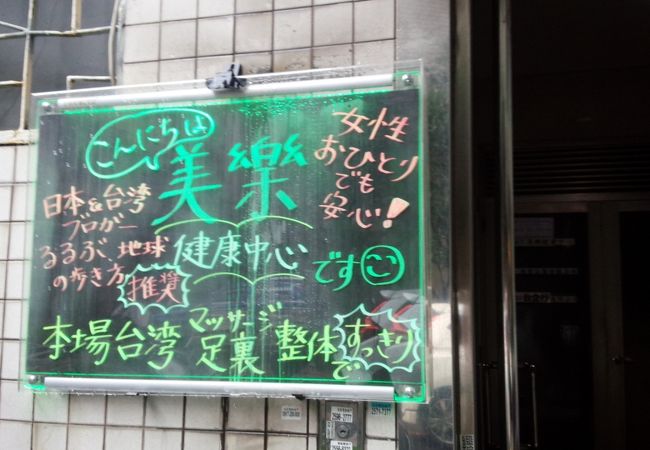 こんにちは
美樂
健康中心
です
女性
おひとり
でも
安心!
日本&台湾
ブロガー
るるぶ、地球
の歩き方
推奨
本場台湾
マッサージ
足裏
整体で
すっきり